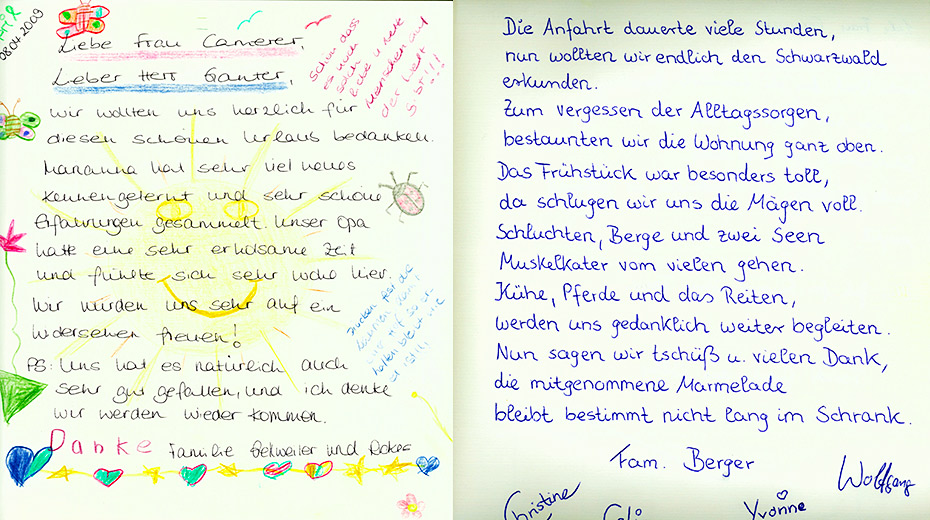 08.04.2009
Liebe Frau Camerer,
Lieber Herr Ganter,
Schön dass
es
solch
liebe
Menschen auf
der Welt
gibt!!!
wir wollten uns herzlich für
diesen schönen Urlaub bedanken.
Marianna hat sehr viel neues
kennengelernt und sehr schöne
Erfahrungen gesammelt. Unser Opa
hatte eine sehr erholsame Zeit
und fühlte sich sehr wohl hier.
Wir würden uns sehr auf ein
Widersehen freuen!
PS: Uns hat es natürlich auch
sehr gut gefallen, und ich denke
wir werden wieder kommen.
Danke Familie und
Die Anfahrt dauerte viele Stunden,
nun wollten wir endlich den Schwarzwald
erkunden.
Zum vergessen der Alltagssorgen,
bestaunten wir die Wohnung ganz oben.
Das Frühstück war besonders toll,
da schlugen wir uns die Mägen voll.
Schluchten, Berge und zwei Seen
Muskelkater vom vielen gehen.
Kühe, Pferde und das Reiten,
werden uns gedanklich weiter begleiten.
Nun sagen wir tschüß u. vielen Dank,
die mitgenommene Marmelade
bleibt bestimmt nicht lang im Schrank.
Fam. Berger
Wolfgang
Christine
Yvonne